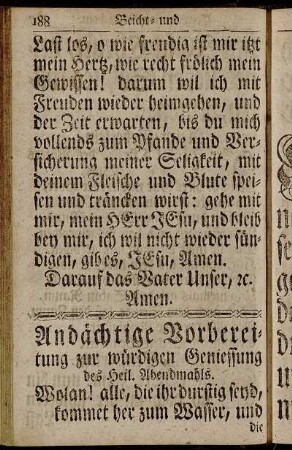 188 Beicht- und
Last los, o wie freudig ist mir itzt
mein Hertz, wie recht frölich mein
Gewissen! darum wil ich mit
Freuden wieder heimgehen, und
der Zeit erwarten, bis du mich
vollends zum Pfande und Ver-
sicherung meiner Seligkeit, mit
deinem Fleische und Blute spei-
sen und träncken wirst: gehe mit
mir, mein HErr JEsu, und bleib
bey mir, ich wil nicht wieder sün-
digen, gib es, JEsu, Amen.
Darauf das Vater Unser, ꝛc.
Amen.
Andächtige Vorberei-
tung zur würdigen Geniessung
des Heil. Abendmahls.
Wolan! alle, die ihr durstig seyd,
kommet her zum Wasser, und
die